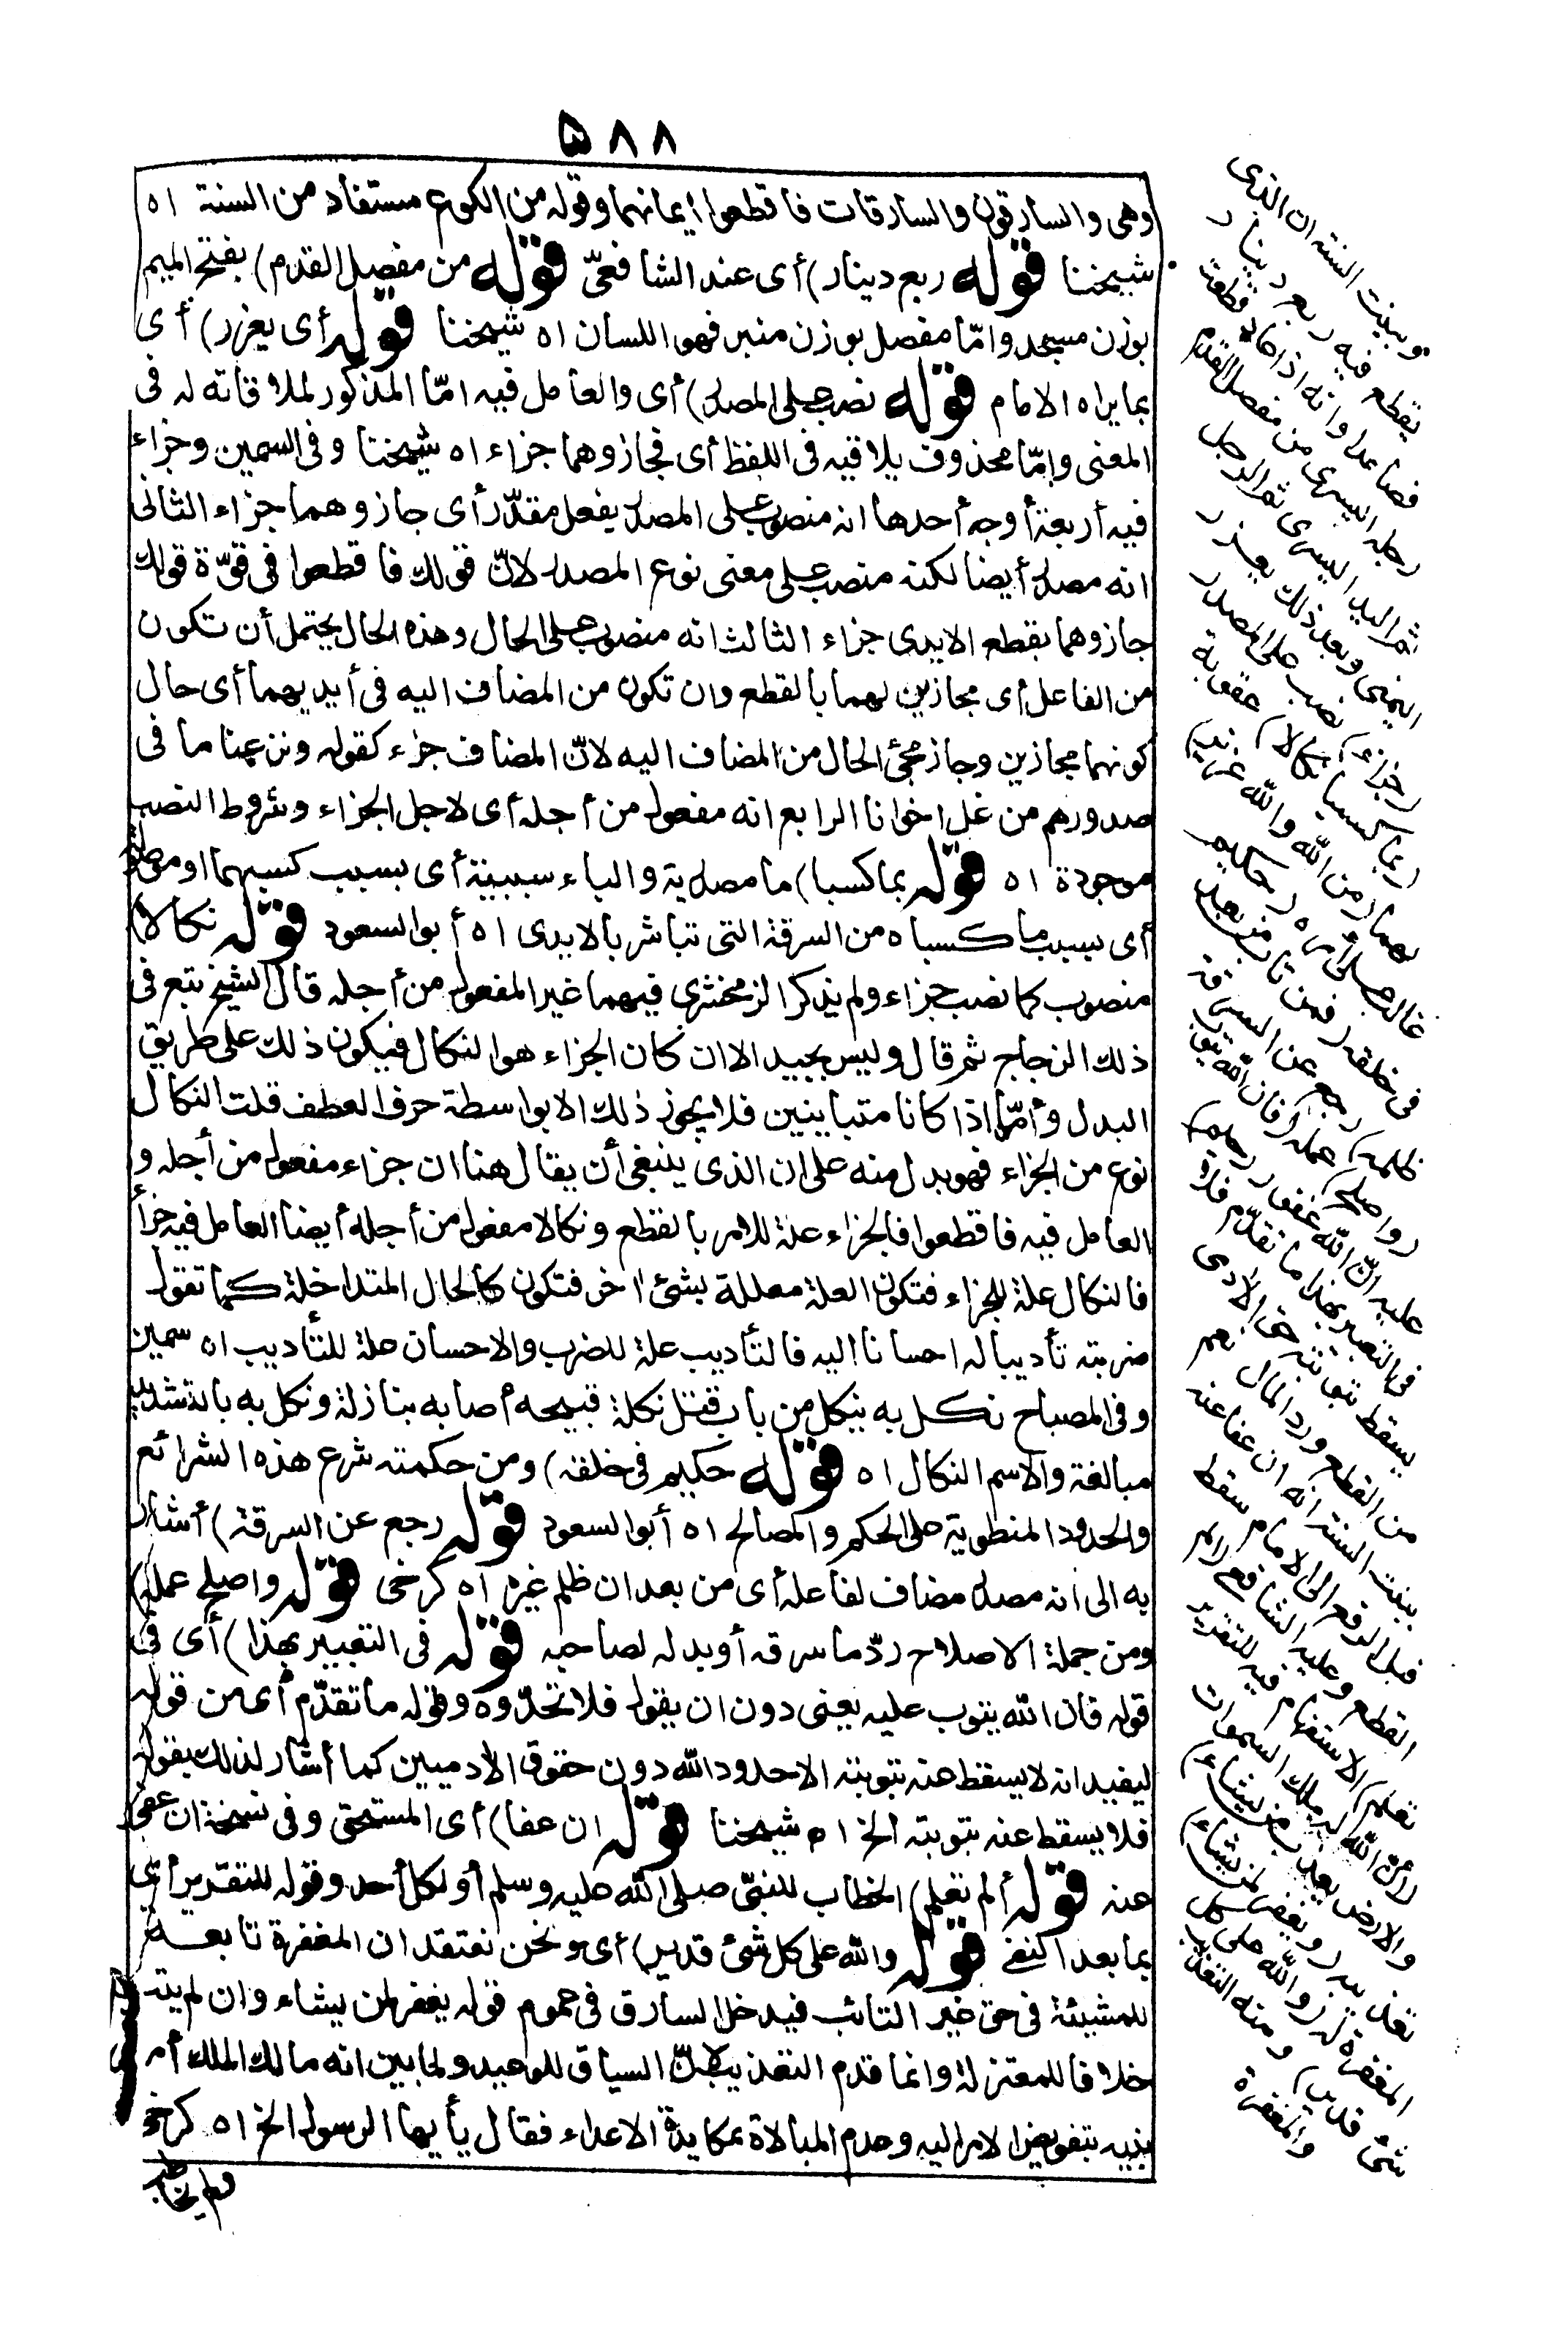 ۵۸۸
وهى والسارقون والسارقات فاقطعوا ايمانهما وقوله من الكوع مستفاد من السنة اه
شيخنا قوله ربع دينار) أى عند الشافعىّ قوله من مفصل القدم) بفتح الميم
بوزن مسجد وامّا مفصل بوزن منبر فهو اللسان اه شيخنا قوله أى يعزر) أى
بما يراه الامام قوله نصب على المصدر) أى والعامل فيه امّا المذكور لملاقاته له فى
المعنى وامّا محذوف يلاقيه فى اللفظ أى فجازوهما جزاء اه شيخنا وفى السمين وجزاء
فيه أربعة أوجه أحدها انه منصوب على المصدر بفعل مقدّر أى جازوهما جزاء الثانى
انه مصدر أيضا لكنه منصب على معنى نوع المصدر لانّ قولك فاقطعوا فى قوّة قولك
جازوهما بقطع الايدى جزاء الثالث انه منصوب على الحال وهذه الحال يحتمل أن تكون
من الفاعل أى مجازين لهما بالقطع وان تكون من المضاف اليه فى أيديهما أى حال
كونهما مجازين وجاز مجئ الحال من المضاف اليه لانّ المضاف جزء كقوله ونزعنا ما فى
صدورهم من غل اخوانا الرابع انه مفعول من أجله أى لاجل الجزاء وشروط النصب
موجودة اه قوله بما كسبا) ما مصدرية والباء سببية أى بسبب كسبهما او موصولة
أى بسبب ما كسباه من السرقة التى تباشر بالايدى اه أبو السعود قوله نكالا)
منصوب كما نصب جزاء ولم يذكر الزمخشرى فيهما غير المفعول من أجله قال الشيخ تبع فى
ذلك الزجاج ثم قال وليس بجيد الا ان كان الجزاء هو النكال فيكون ذلك على طريق
البدل وأمّا اذا كانا متباينين فلا يجوز ذلك الا بواسطة حرف العطف قلت النكال
نوع من الجزاء فهو بدل منه على ان الذى ينبغى أن يقال هنا ان جزاء مفعول من أجله و
العامل فيه فاقطعوا فالجزاء علة للامر بالقطع ونكالا مفعول من أجله أيضا العامل فيه جزأ
فالنكال علة للجزاء فتكون العلة معللة بشئ اخر فتكون كالحال المتداخلة كما تقول
ضربته تأديبا له احسانا اليه فالتأديب علة للضرب والاحسان علة للتأديب اه سمين
وفى المصباح نكل به ينكل من باب قتل نكلة قبيحه أصابه بنازلة ونكل به بالتشديد
مبالغة والاسم النكال اه قوله حكيم فى خلقه) ومن حكمته شرع هذه الشرائع
والحدود المنطوية على الحكم والمصالح اه أبو السعود قوله رجع عن السرقة) أشار
به الى أنه مصدر مضاف لفاعله أى من بعد ان ظلم غيره اه كرخى قوله واصلح عمله)
ومن جملة الاصلاح ردّ ما سرقه أو بدله لصاحبه قوله فى التعبير بهذا) أى فى
قوله فان الله يتوب عليه يعنى دون ان يقول فلا تحدّوه وقوله ما تقدّم أى من قوله
ليفيد انه لا يسقط عنه بتوبته الا حدود الله دون حقوق الآدميين كما أشار لذلك بقوله
فلا يسقط عنه بتوبته الخ اه شيخنا قوله ان عفا) أى المستحق وفى نسخة ان عفى
عنه قوله ألم تعلم) الخطاب للنبىّ صلى الله عليه وسلم أو لكل أحد وقوله للتقرير أى
بما بعد النفى قوله والله على كل شئ قدير) أى ونحن نعتقد ان المغفرة تابعة
للمشيئة فى حق غير التائب فيدخل السارق فى عموم قوله يغفر لمن يشاء وان لم يتب
خلافا للمعتزلة وانما قدم التعذيب لانّ السياق للوعيد ولما بين انه مالك الملك أمر
نبيه بتفويض الامر اليه وعدم المبالاة بمكايدة الاعداء فقال يأيها الرسول الخ اه كرخى
وبينت السنة ان الذى
يقطع فيه ربع دينار
فصاعدا وانه اذا عاد قطعت
رجله اليسرى من مفصل القدم
ثم اليد اليسرى ثم الرجل
اليمنى وبعد ذلك يعزر
(جزاء) نصب على المصدر
(بما كسبا نكالا) عقوبة
لهما (من الله والله عزيز)
غالب على أمره (حكيم)
فى خلقه (فمن تاب من بعد
ظلمه) رجع عن السرقة
(واصلح) عمله (فان الله يتوب
عليه انّ الله غفور رحيم)
فى التعبير بهذا ما تقدّم فلا
يسقط بتوبته حق الآدمى
من القطع ورد المال نعم
بينت السنة انه ان عفا عنه
قبل الرفع الى الامام سقط
القطع وعليه الشافعى (ألم
تعلم) الاستفهام فيه للتقرير
(أنّ الله له ملك السموات
والارض يعذب من يشاء)
تعذيبه (ويغفر لمن يشاء)
المغفرة له (والله على كل
شئ قدير) ومنه التعذيب
والمغفرة